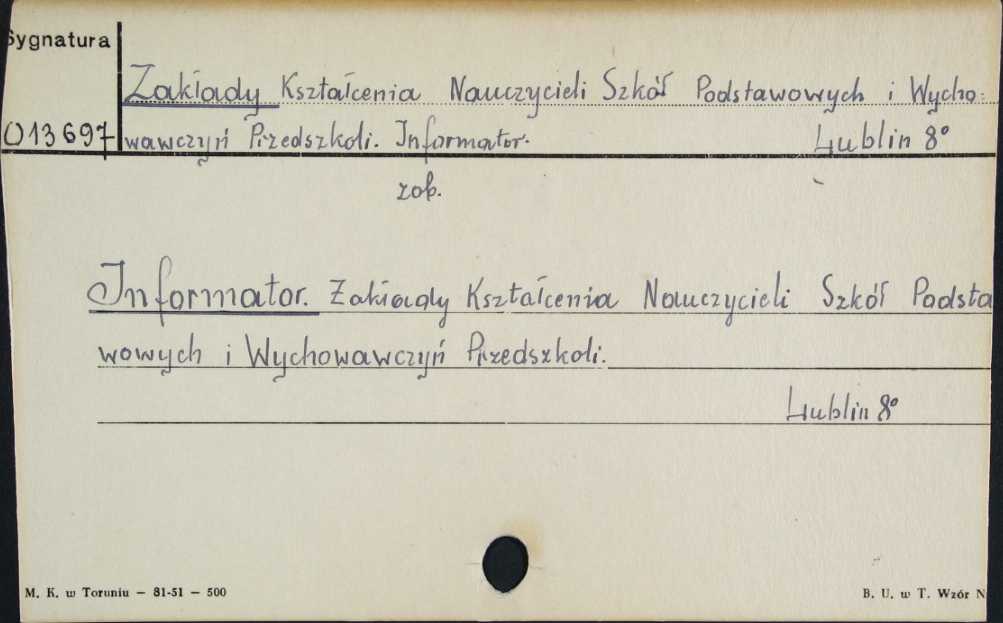 Sygnatura
Zakłady Kształcenia Nauczycieli Szkół Podstawowych i Wycho=
013697 wawczyń Przedszkoli. Informator. Lublin 8°
zob.
Informator. Zakłady Kształcenia Nauczycieli Szkół Podsta
wowych i Wychowawczyń Przedszkoli.
Lublin 8°
M. K. w Toruniu — 81-51 — 500 B. U. w T. Wzór N